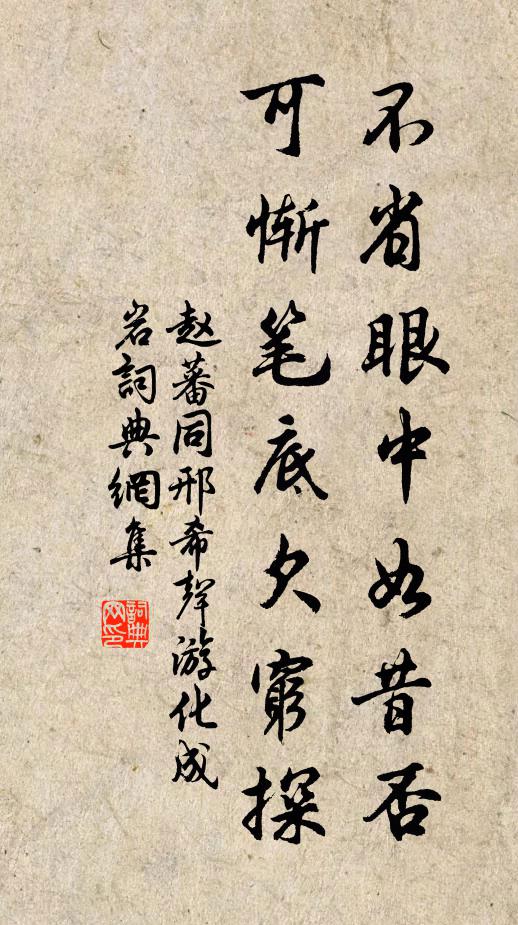 不省眼中如昔否
可惭笔底欠穷探
赵蕃同邢希声游化成
岩词典网集
词典网印